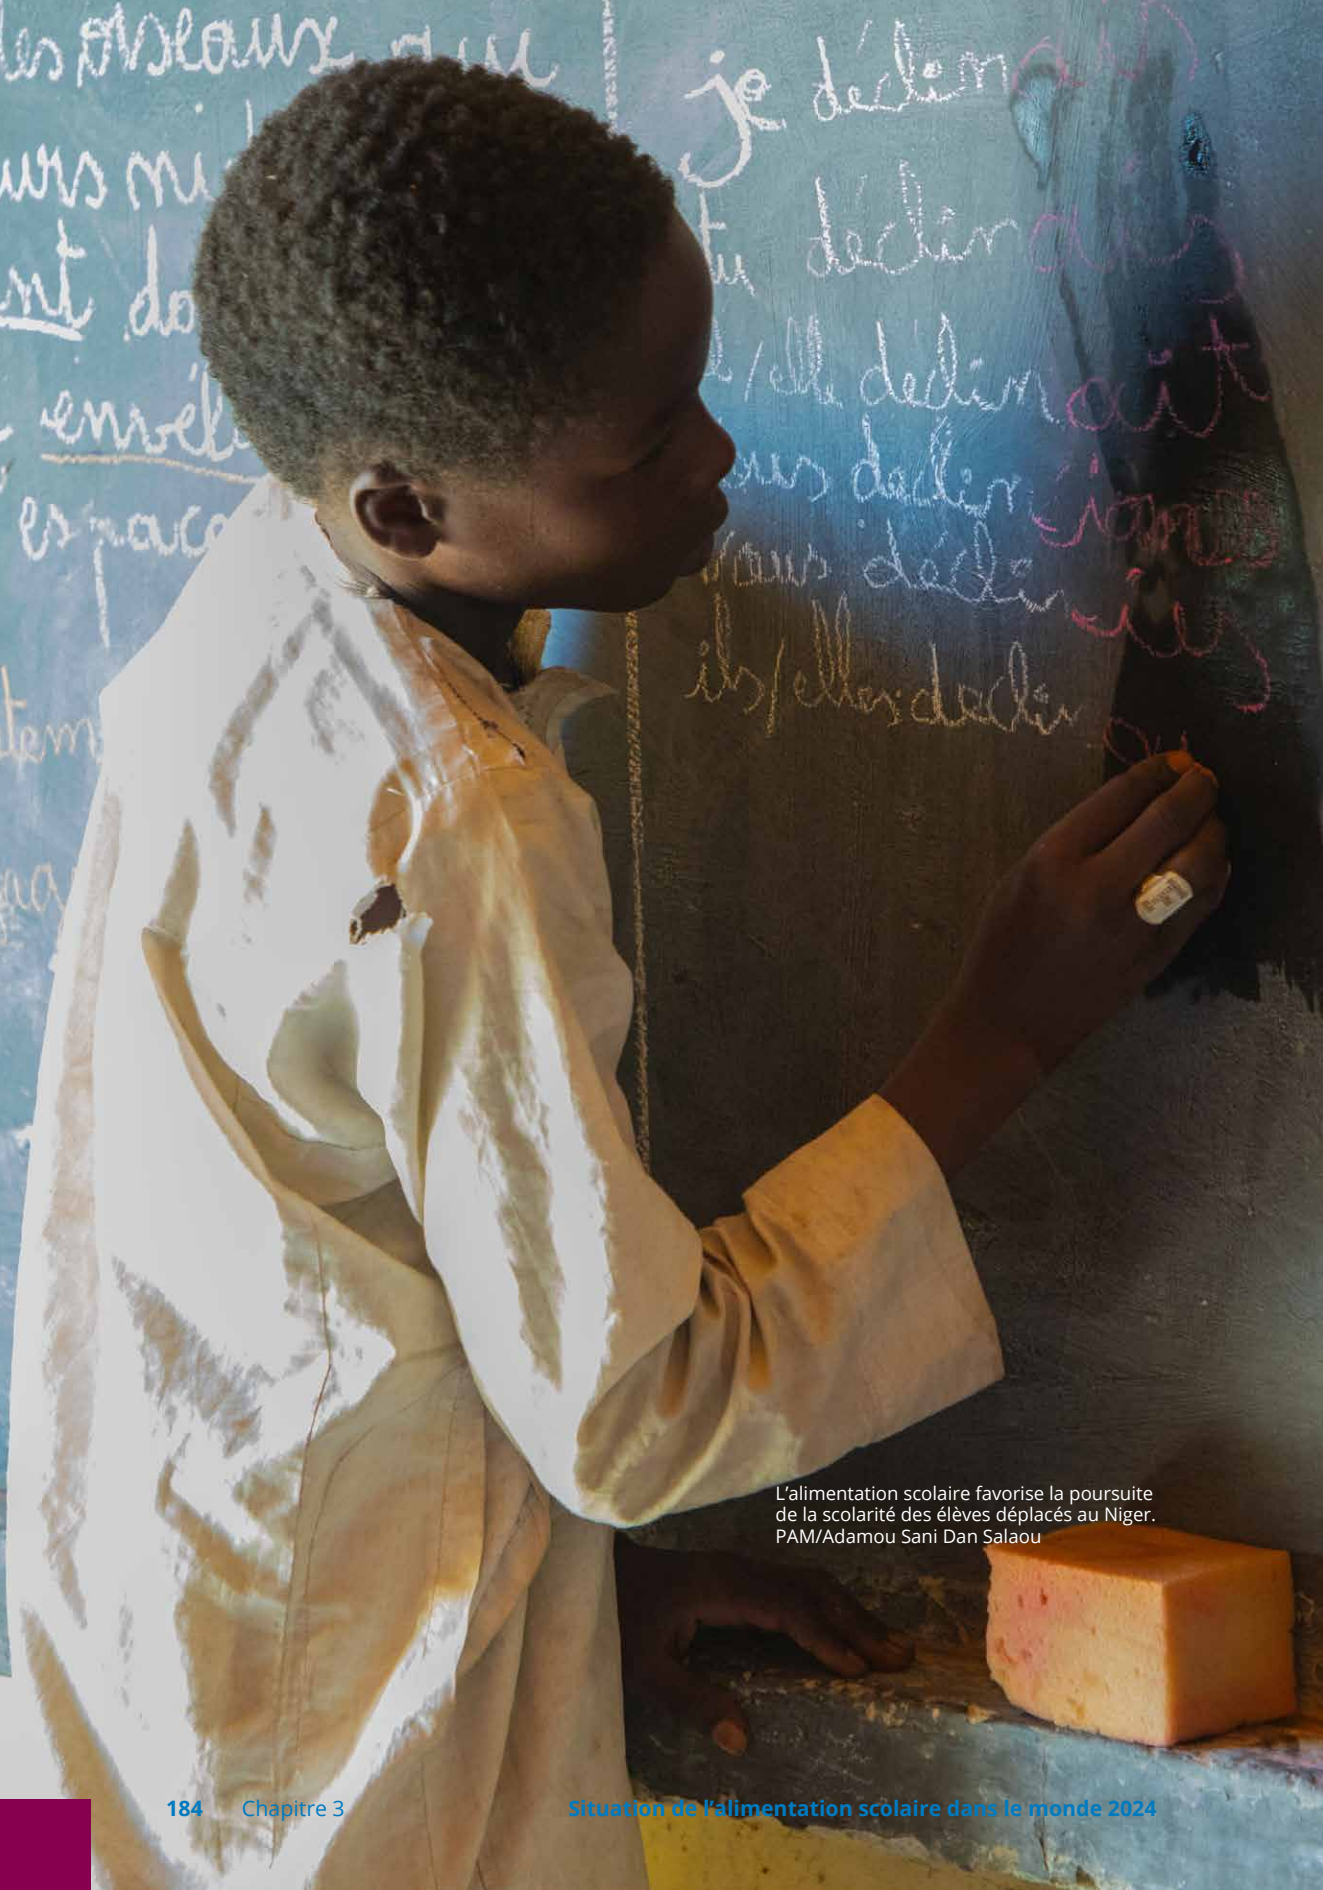 les oiseaux qui
urs ni
nt do
envél
espace
tem
je déclinais
tu déclinais
/elle declinait
ous declinions
vous décliniez
ils/elles declin
L'alimentation scolaire favorise la poursuite
de la scolarité des élèves déplacés au Niger.
PAM/Adamou Sani Dan Salaou
184 Chapitre 3 Situation de l'alimentation scolaire dans le monde 2024